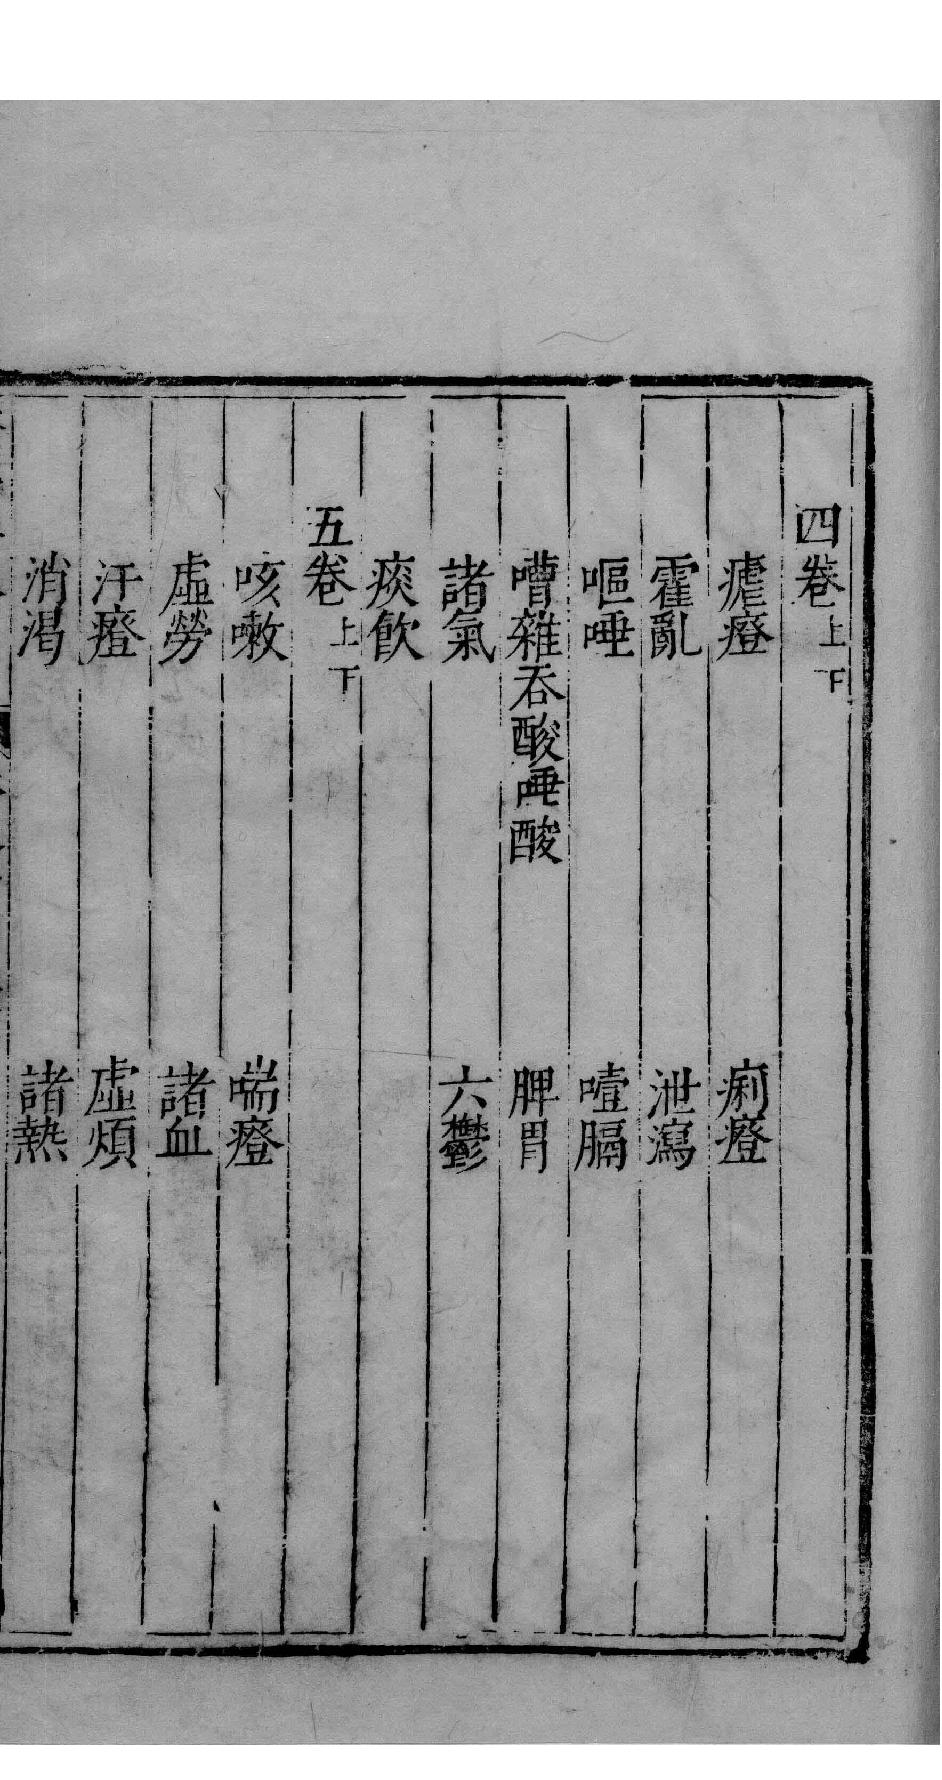 四卷上下
瘧證 痢證
霍亂 泄瀉
嘔唾 噎膈
嘈雜吞酸唾酸 脾胃
諸氣 六鬱
痰飲
五卷上下
咳嗽 喘證
虛勞 諸血
汗證 虛煩
消渴 諸熱